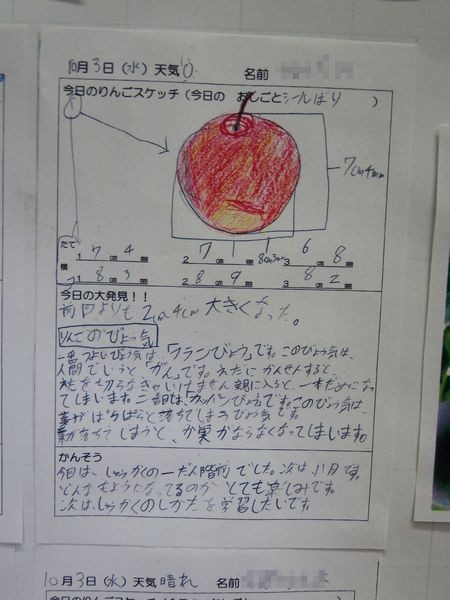 10月3日(水) 天気 名前
今日のりんごスケッチ(今日の おしごとシールはり )
7cm4mm
8cm3mm
たて 1 7 cm 4 mm 2 7 cm 1 mm 3 6 cm 8 mm
横 1 8 cm 3 mm 2 8 cm 9 mm 3 8 cm 2 mm
今日の大発見!!
前回よりも2cm4cm大きくなった。
りんごのびょう気
一番つよいびょう気は、「フランびょう」です。このびょう気は、
人間でいうと「がん」です。えだにかんせんすると、
えだを切らなきゃいけません。幹に入ると、一本だめになっ
てしまいます。二番目は、です。このびょう気は、
葉がぱらぱらと落ちてしまうびょう気です。
葉がおちてしまうと、か実がならなくなってしまいます。
かんそう
今日は、しゅうかくの一だん階前でした。次は11月です。
どんなもようになってるのか、とても楽しみです。
次は、しゅうかくのしかたを学習したいです
10月3日(水) 天気 晴れ 名前